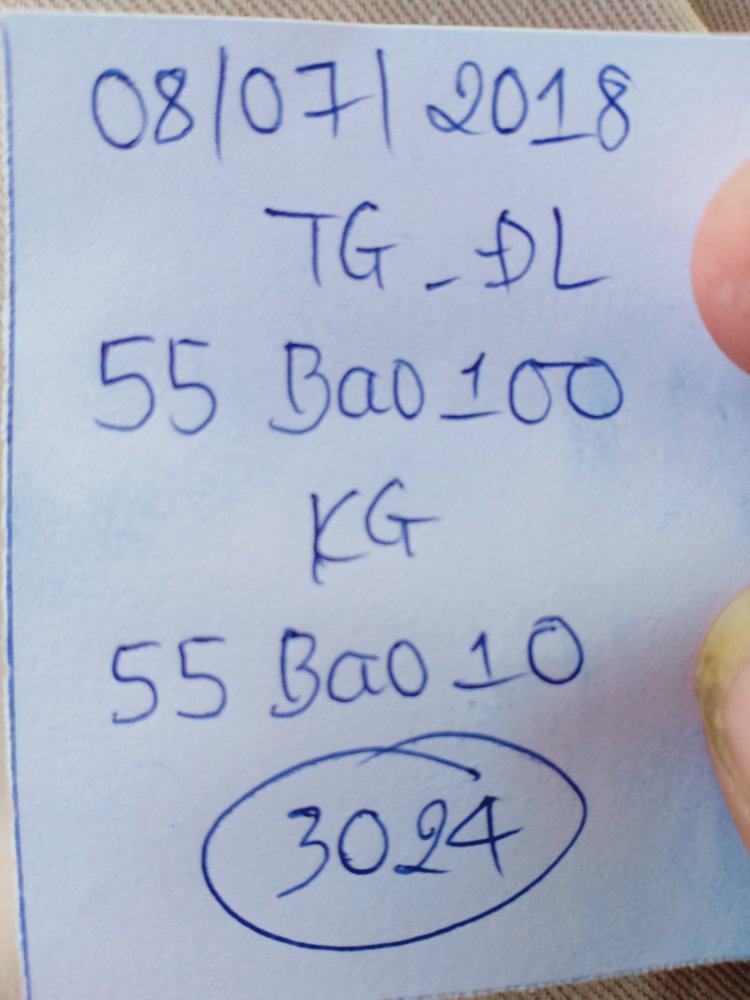 08/07/2018
TG - ĐL
55 Bao 100
KG
55 Bao 10
3024